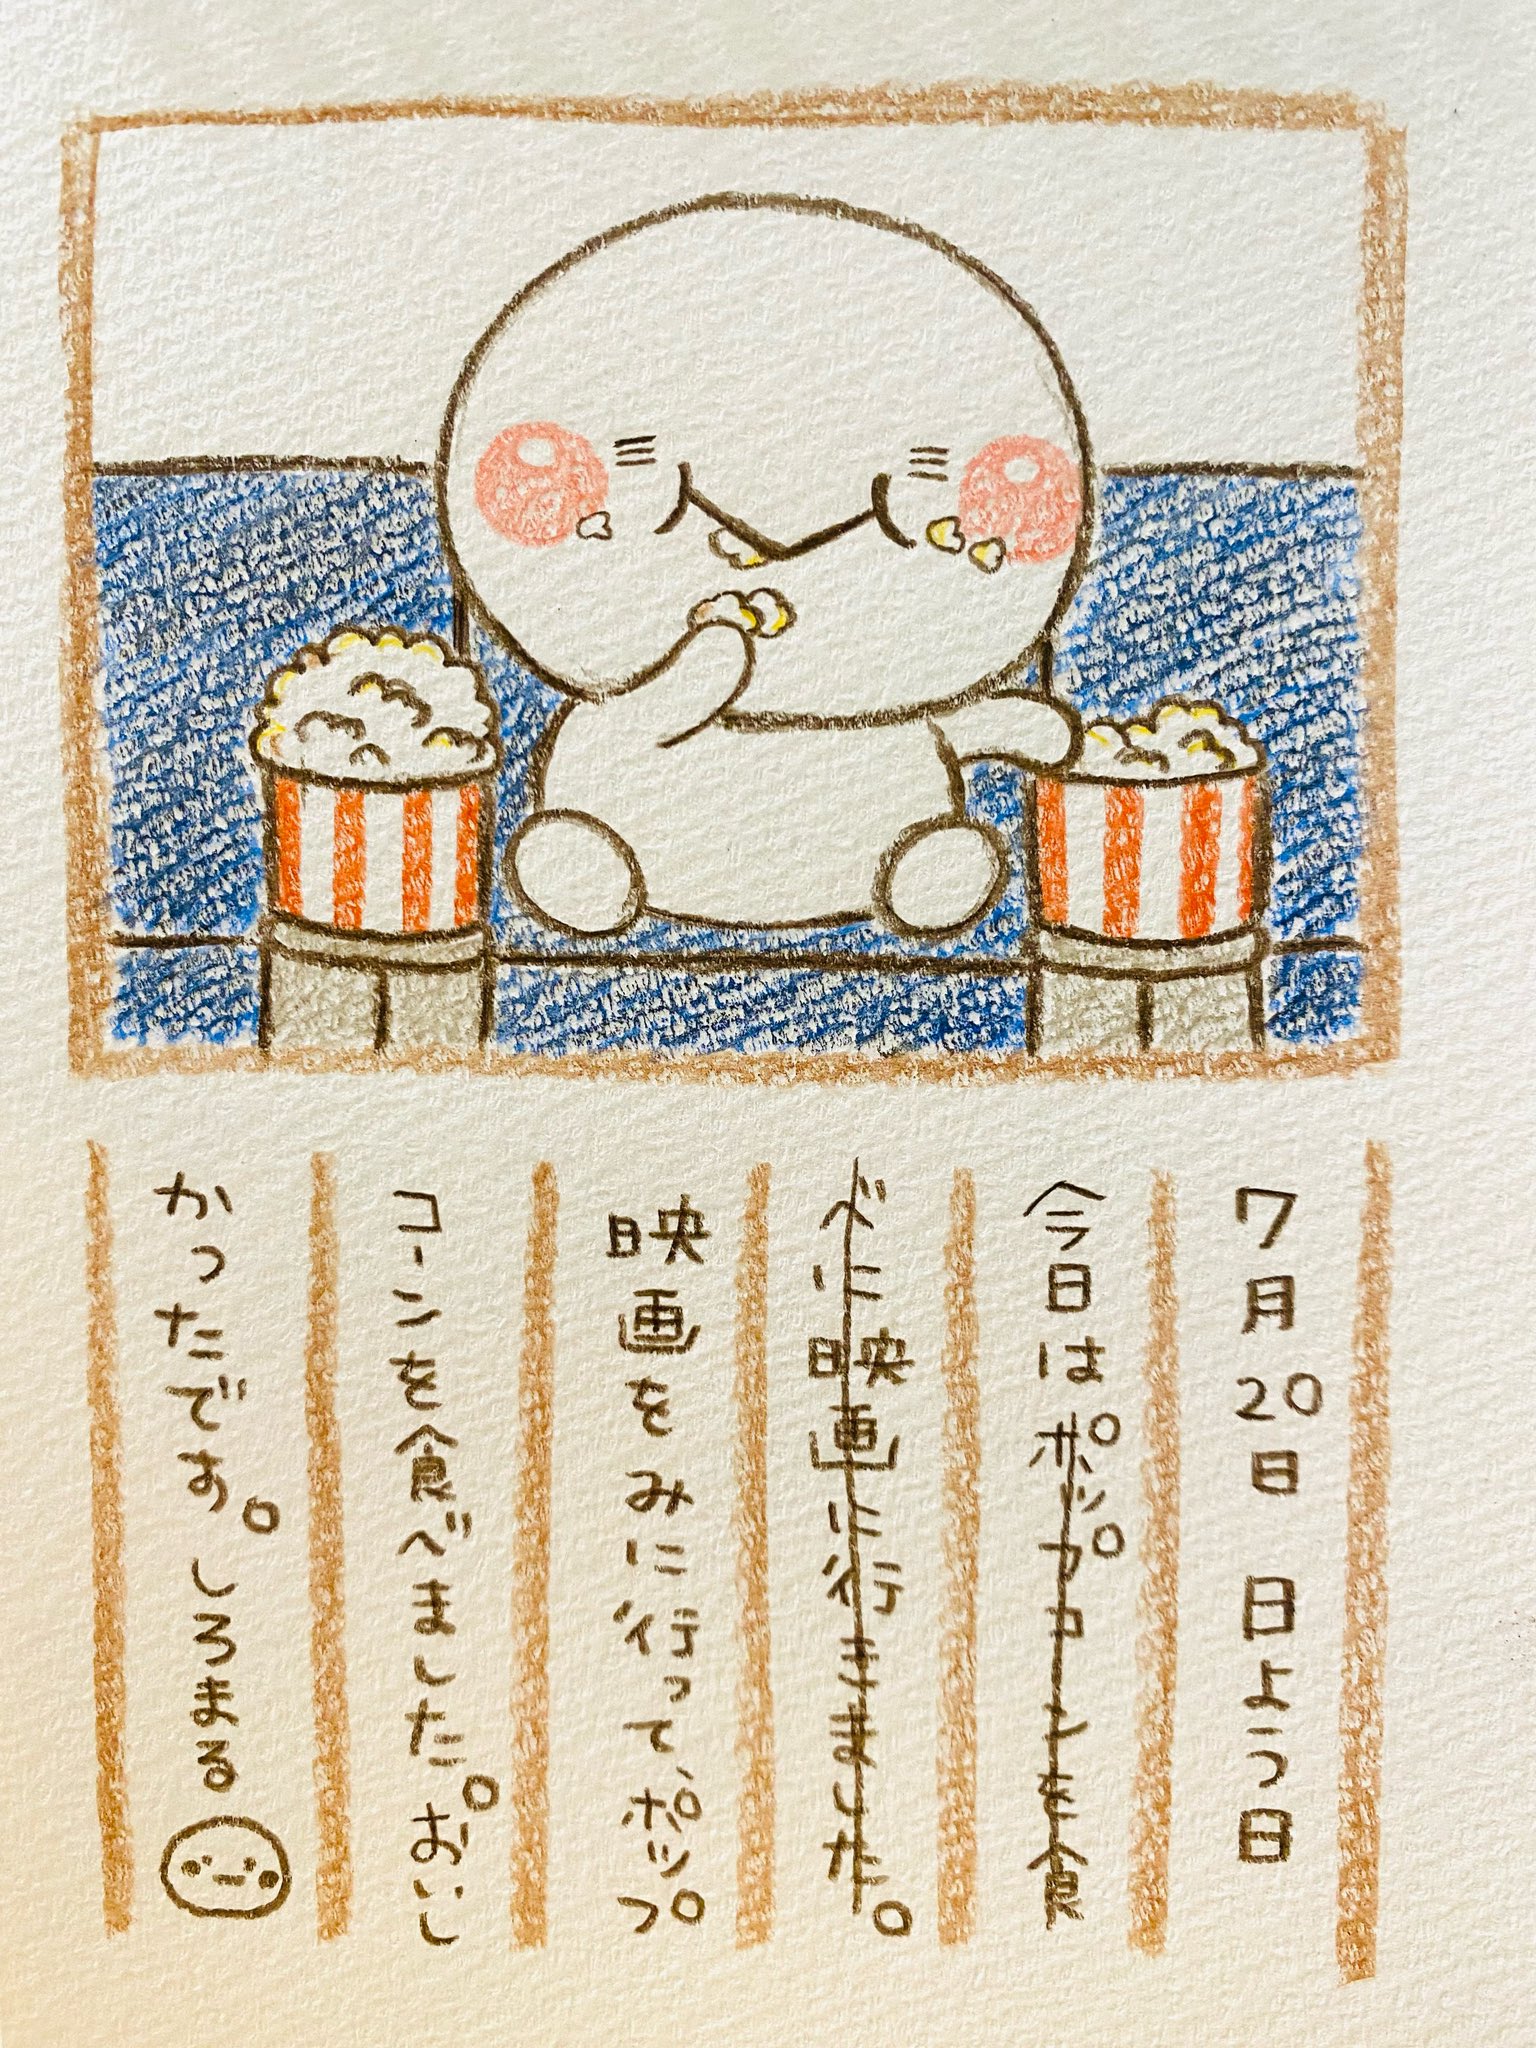 7月20日 日よう日
今日はポップコーンを食
べに映画に行きました。
映画をみに行って、ポップ
コーンを食べました。おいし
かったです。しろまる